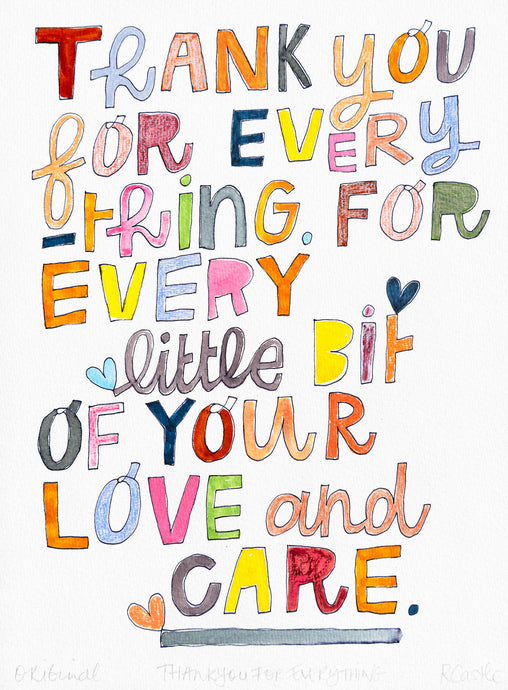 THANK YOU
FOR EVERY
-THING. FOR
EVERY
little BIT
OF YOUR
LOVE and
CARE.
ORIGINAL THANKYOU FOR EVERYTHING RCastle